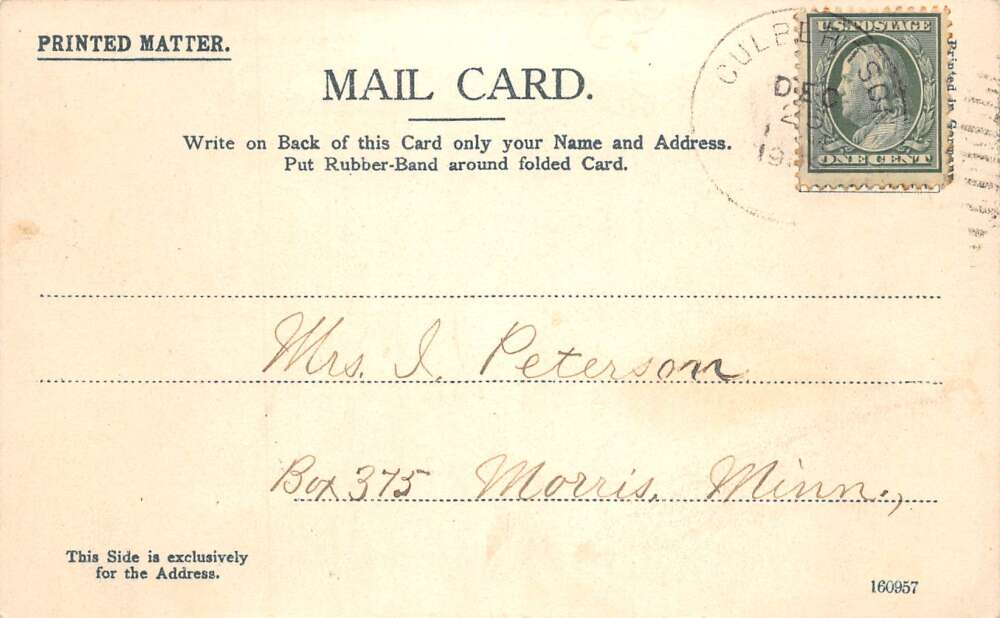 PRINTED MATTER.
MAIL CARD.
Write on Back of this Card only your Name and Address.
Put Rubber-Band around folded Card.
U.S. POSTAGE
ONE CENT
Printed in Germany
DEC
Mrs. I. Peterson
Box 375 Morris, Minn.,
This Side is exclusively
for the Address.
160957